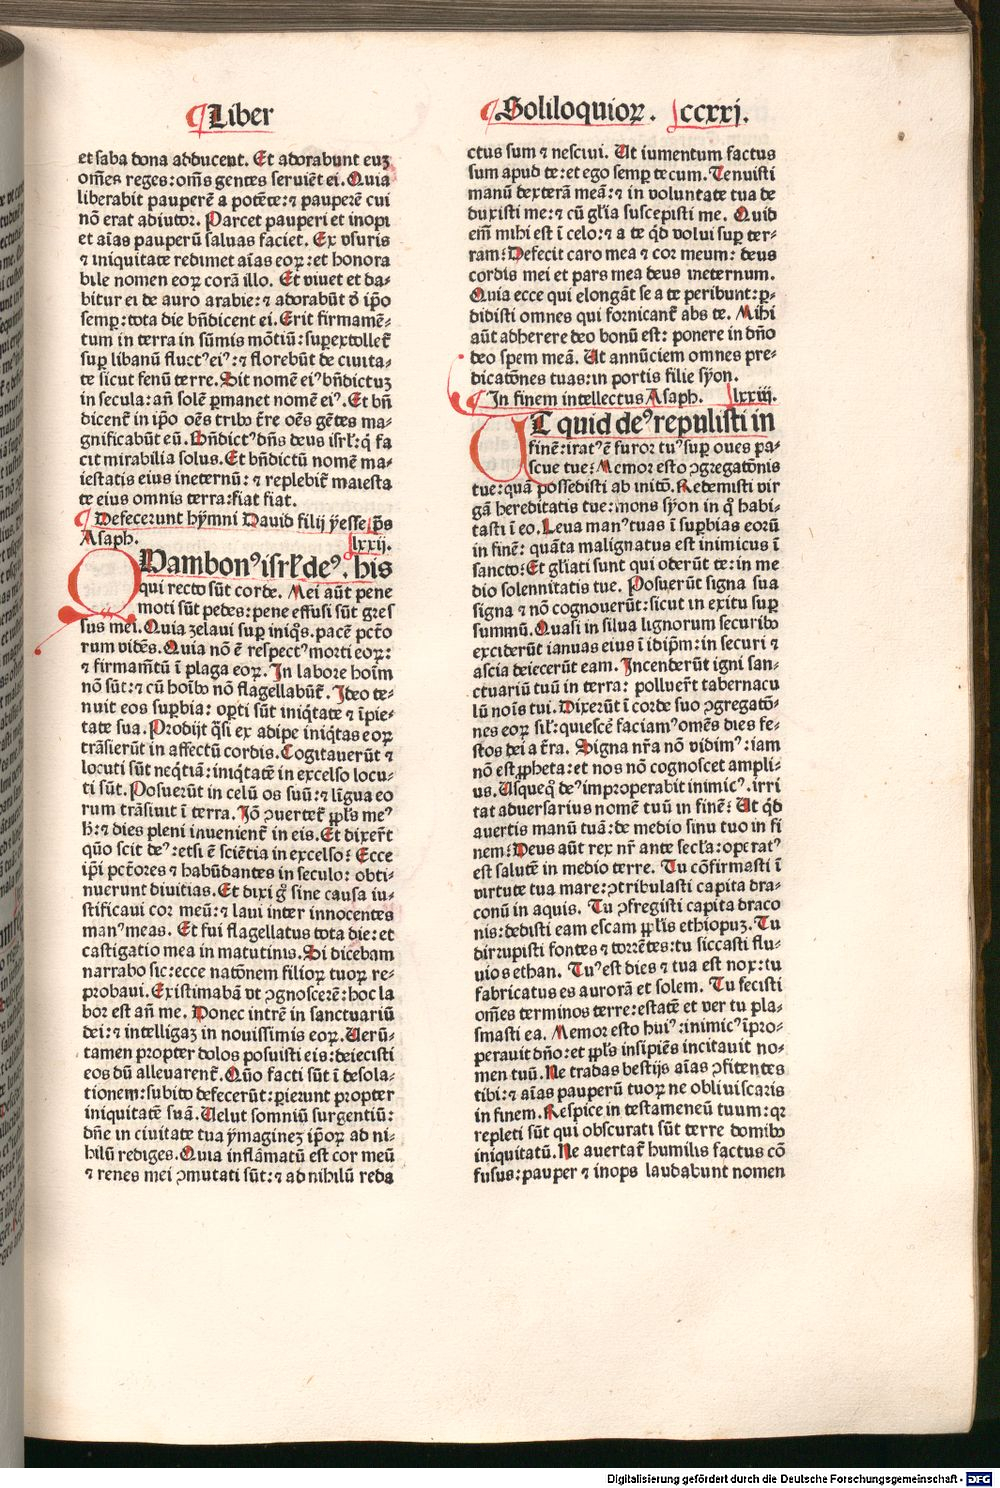 Liber
Soliloquioꝝ. ccxxj.
et saba dona adducent. Et adorabunt euꝫ
om̄es reges: om̄s gentes serviēt ei. Quia
liberabit pauperē a potēte: ⁊ pauperē cui
nō erat adiutor. Parcet pauperi et inopi
et aīas pauperū saluas faciet. Ex vsuris
⁊ iniquitate redimet aīas eoꝝ: et honora
bile nomen eoꝝ corā illo. Et viuet et da⸗
bitur ei de auro arabie: ⁊ adorabūt ꝺ̄ ip̄o
semp̲: tota die bn̄dicent ei. Erit firmamē⸗
tum in terra in sūmis mōtiū: suꝑextolleť
suꝑ libanū fluctꝰ eiꝰ: ⁊ florebūt de ciuita⸗
te sicut fenū terre. Sit nomē eiꝰ bn̄dictuꝫ
in secula: añ solē ꝑmanet nomē eiꝰ. Et bn̄
dicenť in ip̄o oēs tribꝰ ťre oēs gētes ma⸗
gnificabūt eū. Bn̄dictꝰ dn̄s deus isrł: q̇ fa
cit mirabilia solus. Et bn̄dictū nomē ma⸗
iestatis eius ineternū: ⁊ replebiť maiesta
te eius omnis terra: fiat fiat.
Defecerunt hẏmni Dauid filij ẏesse. p̄s
Asaph. lxxij.
Quambonꝰ isrł deꝰ. his
qui recto sūt corde. Mei aūt pene
moti sūt pedes: pene effusi sūt gres
sus mei. Quia zelaui suꝑ iniq̄s. pacē pctō
rum vidēs. Quia nō ē respectꝰ morti eoꝝ:
⁊ firmam̄tū ī plaga eoꝝ. In labore hoīm
nō sūt: ⁊ cū hoībꝰ nō flagellabūť. Ideo te⸗
nuit eos suꝑbia: oꝑti sūt iniq̇tate ⁊ īpie⸗
tate sua. Prodijt q̄si ex adipe iniq̇tas eoꝝ
trāsierūt in affectū cordis. Cogitauerūt ⁊
locuti sūt neq̇tiā: iniq̇tatē in excelso locu⸗
ti sūt. Posuerūt in celū os suū: ⁊ līgua eo
rum trāsiuit ī terra. Iō ꝯuerteť ꝓpłs meꝰ
h̄: ⁊ dies pleni inuenienť in eis. Et dixerť
quō scit deꝰ: etsi ē sciētia in excelso? Ecce
ip̄i pctōres ⁊ habūdantes in seculo: obti⸗
nuerunt diuitias. Et dixi g̊ sine causa iu⸗
stificaui cor meū: ⁊ laui inter innocentes
manꝰ meas. Et fui flagellatus tota die: et
castigatio mea in matutinis. Si dicebam
narrabo sic: ecce natōnem filioꝝ tuoꝝ re⸗
probaui. Existimabā vt ꝯgnoscerē: hoc la
bor est añ me. Donec intrē in sanctuariū
dei: ⁊ intelligaꝫ in nouissimis eoꝝ. Uerū⸗
tamen propter dolos posuisti eis: deiecisti
eos dū alleuarenť. Quō facti sūt ī desola⸗
tionem: subito defecerūt: ꝑierunt propter
iniquitatē suā. Uelut somniū surgentiū:
dn̄e in ciuitate tua ẏmagineꝫ ip̄oꝝ ad ni⸗
hilū rediges. Quia inflāmatū est cor meū
⁊ renes mei ꝯmutati sūt: ⁊ ad nihilū reda
ctus sum ⁊ nesciui. Ut iumentum factus
sum apud te: et ego semꝑ tecum. Tenuisti
manū dexterā meā: ⁊ in voluntate tua de
duxisti me: ⁊ cū gl̄ia suscepisti me. Quid
em̄ mihi est ī celo: ⁊ a te q̊d volui suꝑ ter⸗
ram? Defecit caro mea ⁊ cor meum: deus
cordis mei et pars mea deus ineternum.
Quia ecce qui elongāt se a te peribunt: ꝑ⸗
didisti omnes qui fornicanť abs te. Mihi
aūt adherere deo bonū est: ponere in dn̄o
deo spem meā. Ut annūciem omnes pre⸗
dicatōnes tuas: in portis filie sẏon.
In finem intellectus Asaph. lxxiij.
UT quid deꝰ repulisti in
finē: iratꝰ ē furor tuꝰ suꝑ oues pa⸗
scue tue? Memor esto ꝯgregatōnis
tue: quā possedisti ab initō. Redemisti vir
gā hereditatis tue: mons sẏon in q̊ habi⸗
tasti ī eo. Leua manꝰ tuas ī suꝑbias eorū
in finē: quāta malignatus est inimicus ī
sancto? Et gl̄iati sunt qui oderūt te: in me
dio solennitatis tue. Posuerūt signa sua
signa ⁊ nō cognouerūt: sicut in exitu suꝑ
summū. Quasi in silua lignorum securibꝰ
exciderūt ianuas eius ī idip̄m: in securi ⁊
ascia deiecerūt eam. Incenderūt igni san⸗
ctuariū tuū in terra: polluerťt tabernacu
lū nois̄ tui. Dixerūt ī corde suo ꝯgregatō⸗
nes eoꝝ sił: quiescē faciamꝰ omēs dies fe⸗
stos dei a ťra. Signa nr̄a nō vidimꝰ: iam
nō est ꝓpheta: et nos nō cognoscet ampli⸗
us. Usqueq̊ deꝰ improperabit inimicꝰ: irri
tat aduersarius nomē tuū in finē? Ut q̇d
auertis manū tuā: de medio sinu tuo in fi
nem? Deus aūt rex nr̄ ante secl̄a: operatꝰ
est salutē in medio terre. Tu cōfirmasti ī
virtute tua mare: ꝯtribulasti capita dra⸗
conū in aquis. Tu ꝯfregisti capita draco
nis: dedisti eam escam ꝓpłis ethiopuꝫ. Tu
dirrupisti fontes ⁊ torrētes: tu siccasti flu⸗
uios ethan. Tuꝰ est dies ⁊ tua est nox: tu
fabricatus es aurorā et solem. Tu fecisti
om̄es terminos terre: estatē et ver tu pla⸗
smasti ea. Memor esto huiꝰ: inimicꝰ īpro⸗
perauit dn̄o: et ꝓpłs insipiēs incitauit no⸗
men tuū. Ne tradas bestijs aīas ꝯfitentes
tibi: ⁊ aīas pauperū tuoꝝ ne obliuiscaris
in finem. Respice in testameneū tuum: qꝛ
repleti sūt qui obscurati sūt terre domibꝰ
iniquitatū. Ne auertať humilis factus cō
fusus: pauper ⁊ inops laudabunt nomen
Digitalisierung gefördert durch die Deutsche Forschungsgemeinschaft - DFG